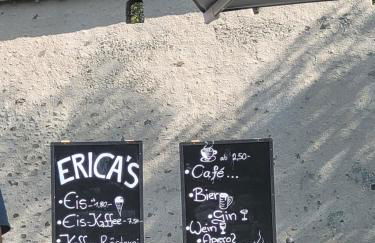 ERICA'S
• Eis ab 1.80-
• Eis-Kaffee 7.50
ab 2,50-
• Café...
• Bier
• Gin
Wein
• Apero?